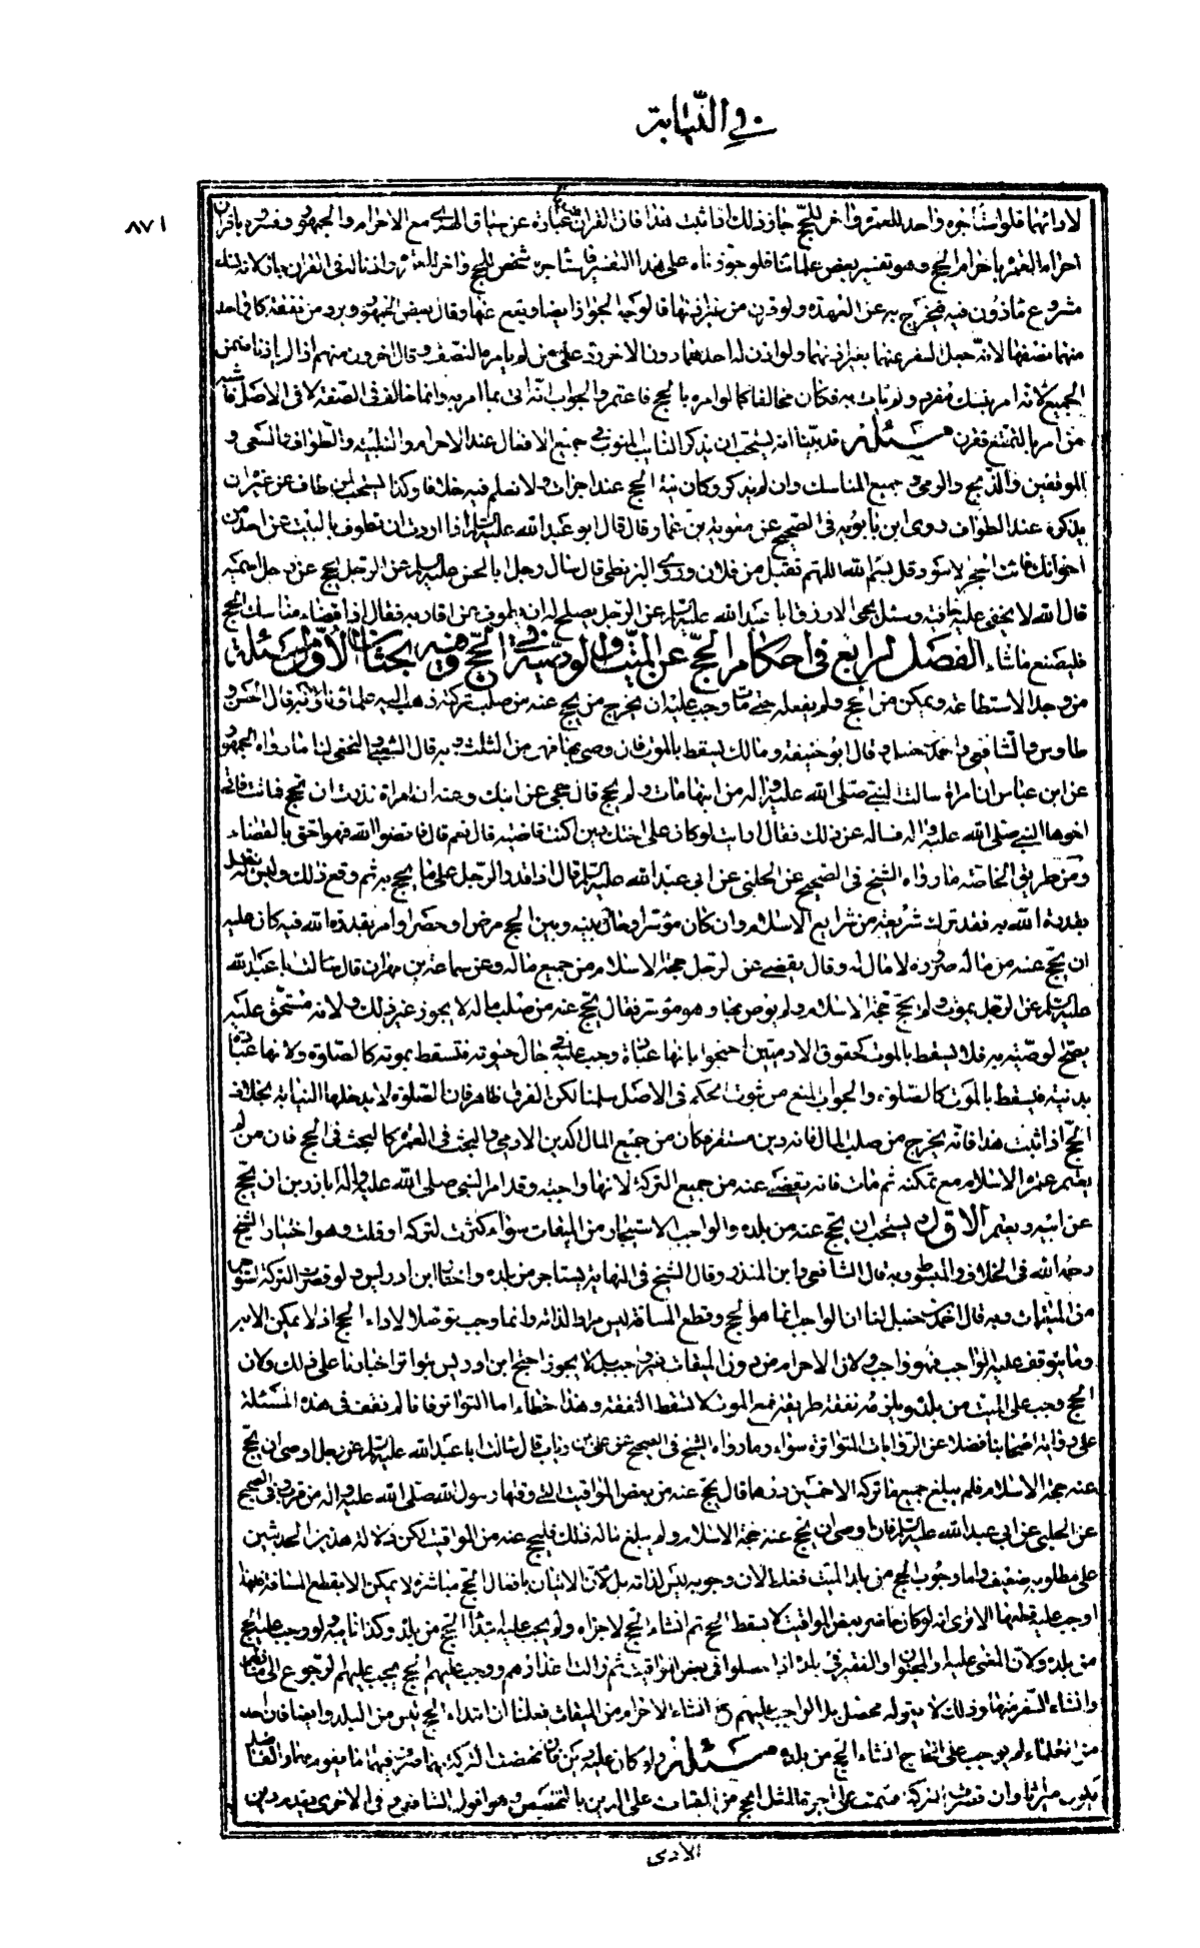 في النّيابة
٨٧١
لادائهما فلو استأجره واحد للعمرة واخر للحجّ جاز ذلك اذا ثبت هذا فان القران عبارة عن سياق الهدى مع الاحرام والجمهور فسّره بان قران
احرام العمرة باحرام الحج وهو تفسير بعض علمائنا فلو جوّزناه على هذا التفسير فاستأجره شخص للحج واخر للعمرة واذنا له فى القران جاز لانه نسك
مشروع مأذون فيه فيخرج به عن العهدة ولو قرن من غير اذنهما فالوجه الجواز ايضا ويقع عنهما وقال بعض الجمهور ويرد من نفقة كل واحد
منهما نصفها لانه جعل السفر عنهما بغير اذنهما ولو اذن له احدهما دون الاخر رد على من لم يأمره النصف وقال اخرون منهم اذا لم يأذنا ضمن
الجميع لانه امر بنسك مفرد ولم يأت به فكان مخالفا كما لو امره بالحج فاعتمر والجواب انه اتى بما امر به وانما خالف فى الصّفة لا فى الاصل فاشبه
من امر بالتمتّع فقرن مسئلة قد بيّنا انه يستحب ان يذكر النايب المنوب فى جميع الافعال عند الاحرام والتلبية والطواف والسّعى و
الموقفين والذّبح والرمى وجميع المناسك وان لم يذكر وكان نية الحج عنه اجزأت ولا نعلم فيه خلافا وكذا يستحب لمن طاف عن غيره ان
يذكره عند الطواف روى ابن بابويه فى الصّحيح عن معوية بن عمار وقال قال ابو عبد الله عليه السلام اذا اردت ان تطوف بالبيت عن احد من
اخوانك فائت الحجر الاسود وقل بسم الله اللهم تقبل من فلان وروى البزنطى قال سال رجل ابا الحسن عليه السلام عن الرجل يحج عن رجل يسميه
قال الله لا يخفى عليه خافية وسئل يحيى الازرق ابا عبد الله عليه السلام عن الرجل يصلح له ان يطوف عن اقاربه فقال اذا قضى مناسك الحج
فليصنع ما شاء الفصل الرابع فى احكام الحجّ عن الميّت والوصيّة فى الحجّ وفيه بحثان الاوّل مسئلة
من وجد الاستطاعة وتمكن من الحج ولم يفعله حتى مات وجب عليه ان يخرج من يحج عنه من صلب تركته ذهب اليه علماؤنا وبه قال الحسن و
طاوس والشافعى واحمد بن حنبل وقال ابو حنيفة ومالك يسقط بالموت فان وصى بها فهى من الثلث وبه قال الشعبى والنخعى لنا ما رواه الجمهور
عن ابن عباس ان امراة سالت النبى صلى الله عليه واله من ابيها مات ولم يحج قال حجى عن ابيك وعنه ان امراة نذرت ان تحج فماتت فاتى
اخوها النبى صلى الله عليه واله فساله عن ذلك فقال ارايت لو كان على اختك دين اكنت قاضيه قال نعم قال فاقضوا الله فهو احق بالقضاء
ومن طريق الخاصة ما رواه الشيخ فى الصحيح عن الحلبى عن ابى عبد الله عليه السلام قال اذا قدر الرجل على ما يحج به ثم دفع ذلك وليس له شغل
يعذره الله به فقد ترك شريعة من شرايع الاسلام وان كان موسرا وحال بينه وبين الحج مرض او حصر او امر يعذره الله فيه كان عليه
ان يحج عنه من ماله صرورة لا مال له وقال يقضى عن الرجل حجة الاسلام من جميع ماله وعن سماعة بن مهران قال سالت ابا عبد الله
عليه السلام عن الرجل يموت ولم يحج حجة الاسلام ولم يوص بها وهو موسر فقال يحج عنه من صلب ماله لا يجوز غير ذلك ولانه مستحق عليه
يصح الوصيّة به فلا يسقط بالموت كحقوق الادميين احتجوا بانها عبادة وجبت عليه فى حال حيوته فتسقط بموته كالصلوة ولانها عبادة
بدنية فيسقط بالموت كالصلوة والجواب المنع من ثبوت الحكم فى الاصل سلمنا لكن الفرق ظاهر فان الصلوة لا يدخلها النيابة بخلاف
الحجّ اذا ثبت هذا فانه يخرج من صلب المال فانه دين مستقر فكان من جميع المال كدين الادمى والبحث فى العمرة كالبحث فى الحج فان من لم
يعتمر عمرة الاسلام مع تمكنه ثم مات فانه يقضى عنه من جميع التركة لانها واجبة وقد امر النبى صلى الله عليه واله ابا رزين ان يحج
عن ابيه ويعتمر الاوّل يستحب ان يحج عنه من بلده والواجب الاستيجار من الميقات سواء كثرت التركة او قلت وهو اختيار الشيخ
رحمه الله فى الخلاف والمبسوط وبه قال الشافعى وابن المنذر وقال الشيخ فى النهاية يستاجر من بلده واختاره ابن ادريس ولو قصرت التركة استوجر
من الميقات وبه قال احمد بن حنبل لنا ان الواجب انما هو الحج وقطع المسافة ليس مرادا لذاته وانما وجب توصّلا لاداء الحج اذ لا يمكن الا به
وما يتوقف عليه الواجب فهو واجب ولان الاحرام من دون الميقات غير واجب بل لا يجوز احتج ابن ادريس بتواتر اخبارنا على ذلك ولان
الحج وجب على الميت من بلده ويلزمه نفقة طريقه فمع الموت لا تسقط النفقة وهذا خطاء اما التواتر فانا لم نقف فى هذه المسئلة
على رواية اصحابنا فضلا عن الروايات المتواترة سواء وما رواه الشيخ فى الصحيح عن على بن رئاب قال سالت ابا عبد الله عليه السلام عن رجل اوصى ان يحج
عنه حجة الاسلام فلم يبلغ جميع ما تركه الا خمسين درهما قال يحج عنه من بعض المواقيت التى وقتها رسول الله صلى الله عليه واله من قرب وفى الصحيح
عن الحلبى عن ابى عبد الله عليه السلام فان اوصى ان يحج عنه حجة الاسلام ولم يبلغ ماله ذلك فليحج عنه من المواقيت لكن دلالة هذين الحديثين
على مطلوبه ضعيف واما وجوب الحج من بلد الميت فغلط لان وجوبه ليس لذاته بل لان الاتيان بافعال الحج مباشرة لا يمكن الا بقطع المسافة فلهذا
اوجب عليه قطعها الا ترى انه لو كان حاضر بعض المواقيت لا بقصد الحج ثم انشاء الحج لاجزاه ولم يجب عليه ابتداء الحج من بلده وكذا نايبه لو وجب عليه الحج
من بلده ولان المغمى عليه او المجنون او الفقير فى بلده اذا حصلوا فى بعض المواقيت ثم زالت اعذارهم ووجب عليهم الحج يجب عليهم الرجوع الى منازلهم
وانشاء السّفر منها وذلك لا يقوله محصل بل الواجب عليهم انشاء الاحرام من الميقات فعلمنا ان ابتداء الحج ليس من البلد وايضا فان احد
من العلماء لم يوجب على الحاج انشاء الحج من بلده مسئلة ولو كان عليه دين فان نهضت التركة بهما صرف فيهما ما يقوم بهما والفاضل
يكون ميراثا وان قصرت التركة قسمت على اجرة المثل لحج من الميقات على الدين بالتحصيص وهو اقول الشافعى وفى الاخرى يقدم دين
الادمى